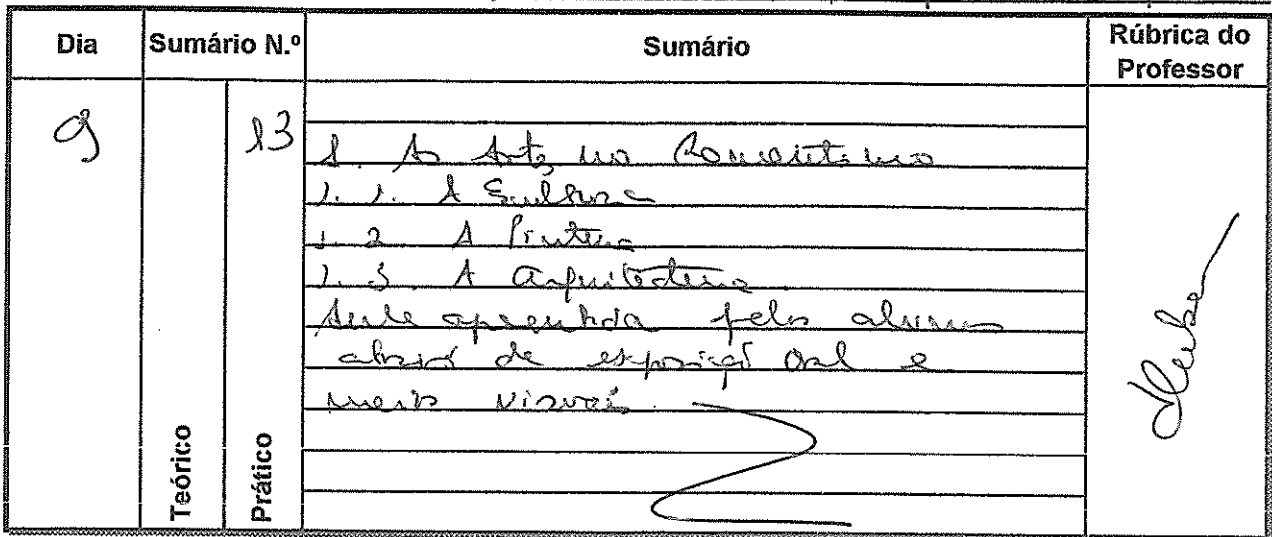 Dia Sumário N.º Sumário Rúbrica do Professor
9 13
1. As Artes no Romantismo
1.1. A Escultura
1.2 A Pintura
1.3. A Arquitectura.
Aula apresentada pelos alunos
através de exposição oral e
meios visuais.
Teórico Prático